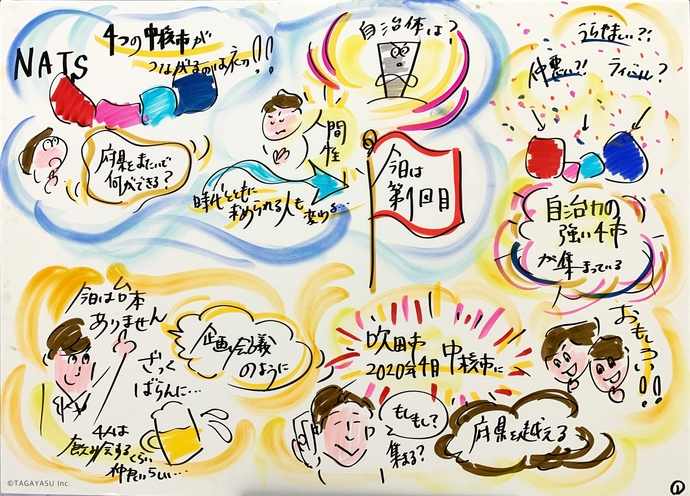 NATS
4つの中核市が
つながるのは初!!
府県をまたいで
何ができる?
人間性
時代とともに
求められる人も
変わる…
自治体は?
今日は
第1回目
うらやましい?!
仲悪い?!
ライバル?
自治力の
強い4市
が集まっている
今日は台本
ありません
ざっく
ばらんに…
企画会議
のように
4人は
飲み会するくらい
仲良いらしい…
吹田市
2020年4月 中核市に
もしもし?
集まる?
府県を越える
おもしろい!!
©TAGAYASU Inc.
1